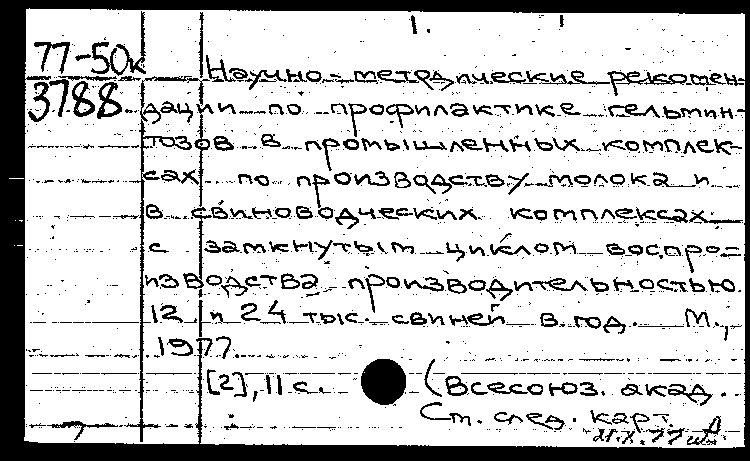 1.
77-50к
3788
Научно-методические рекомен-
дации по профилактике гельмин-
тозов в промышленных комплек-
сах по производству молока и
в свиноводческих комплексах
с замкнутым циклом воспро-
изводства производительностью
12 и 24 тыс. свиней в год. М.,
1977.
[2], 11 с. (Всесоюз. акад.
См. след. карт. А
21.X.77